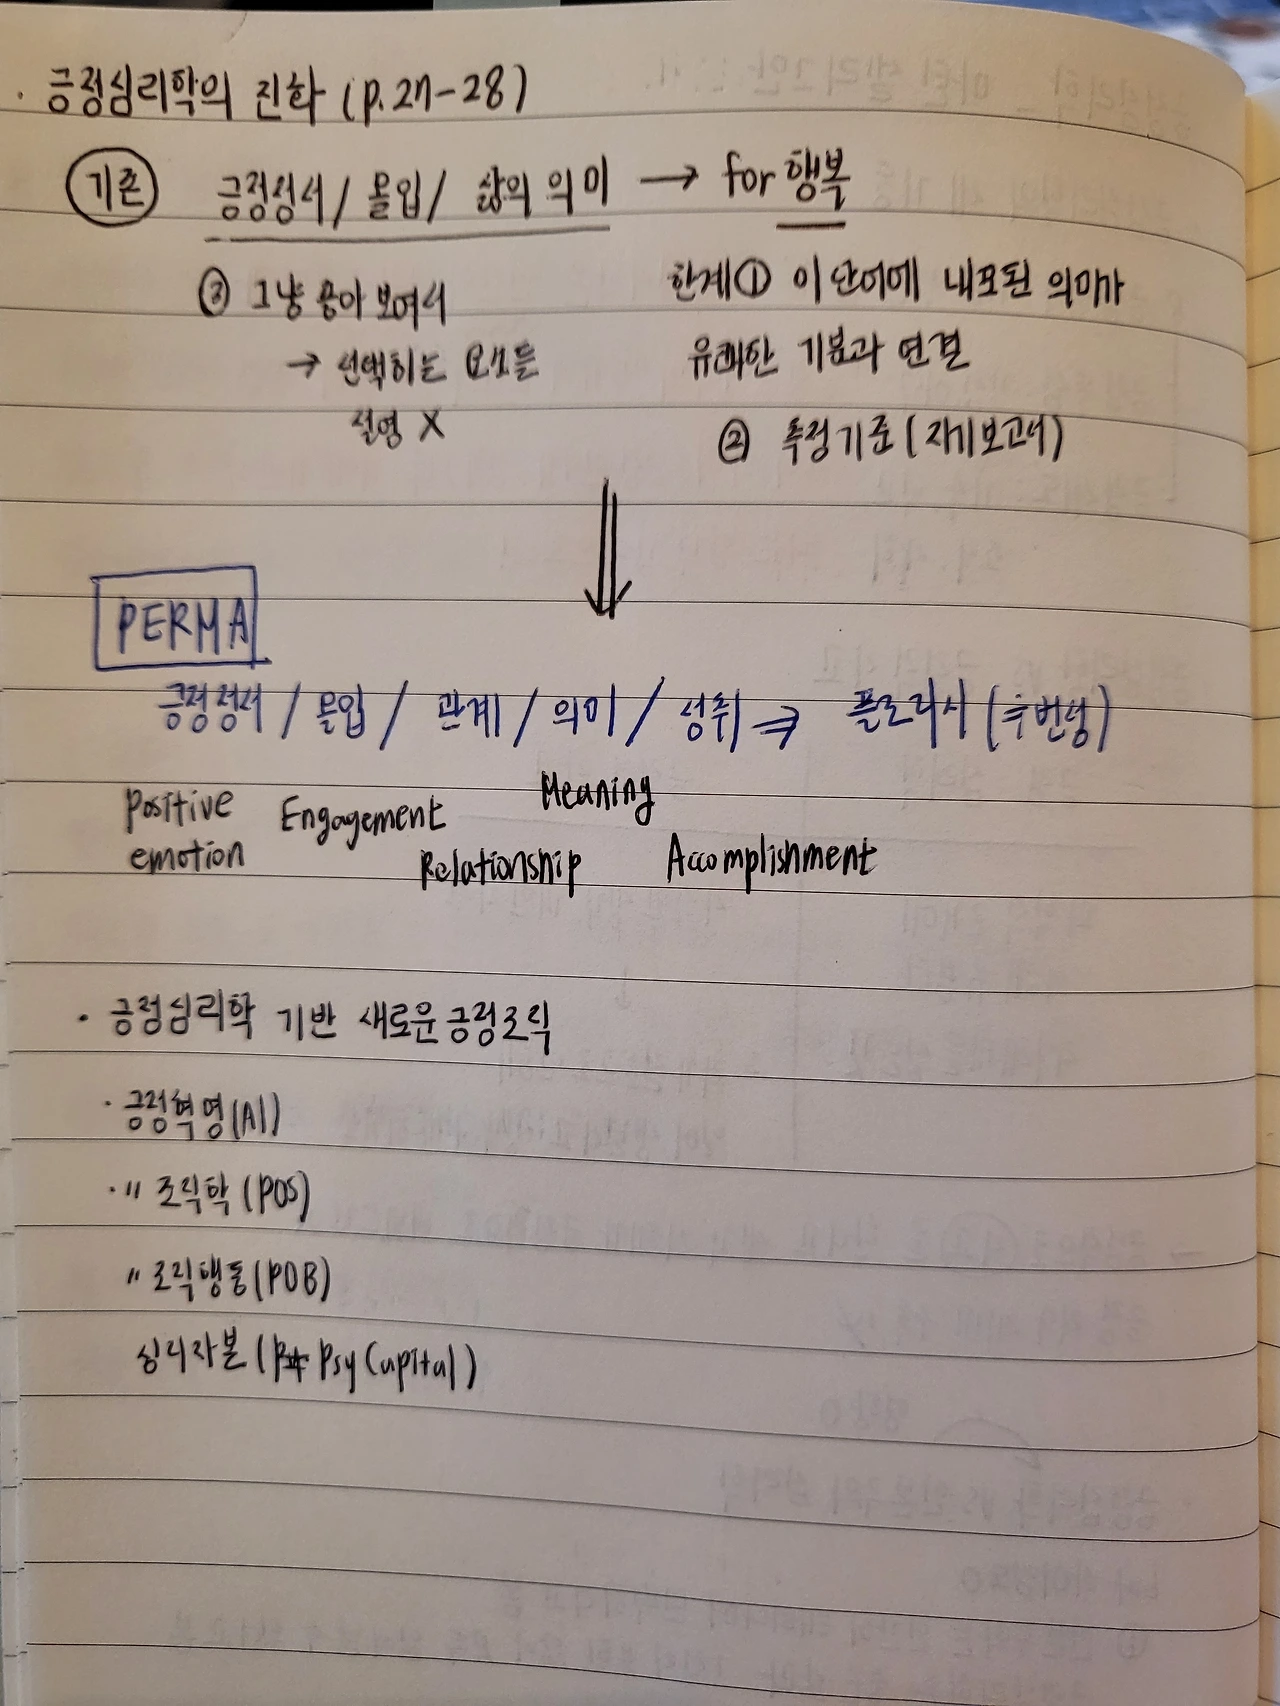 · 긍정심리학의 진화 (p.27-28)
기존 긍정정서 / 몰입 / 삶의 의미 → for 행복
③ 그냥 좋아 보여서
→ 선택하는 요소들
설명 X
한계① 이 단어에 내포된 의미가
유쾌한 기분과 연결
② 측정기준 (자기보고서)
PERMA
긍정정서 / 몰입 / 관계 / 의미 / 성취 ⇒ 플로리시 (≒번성)
Positive
emotion
Engagement
Relationship
Meaning
Accomplishment
· 긍정심리학 기반 새로운 긍정조직
· 긍정혁명(AI)
· 〃 조직학 (POS)
〃 조직행동 (POB)
심리자본 ( Psy Capital)